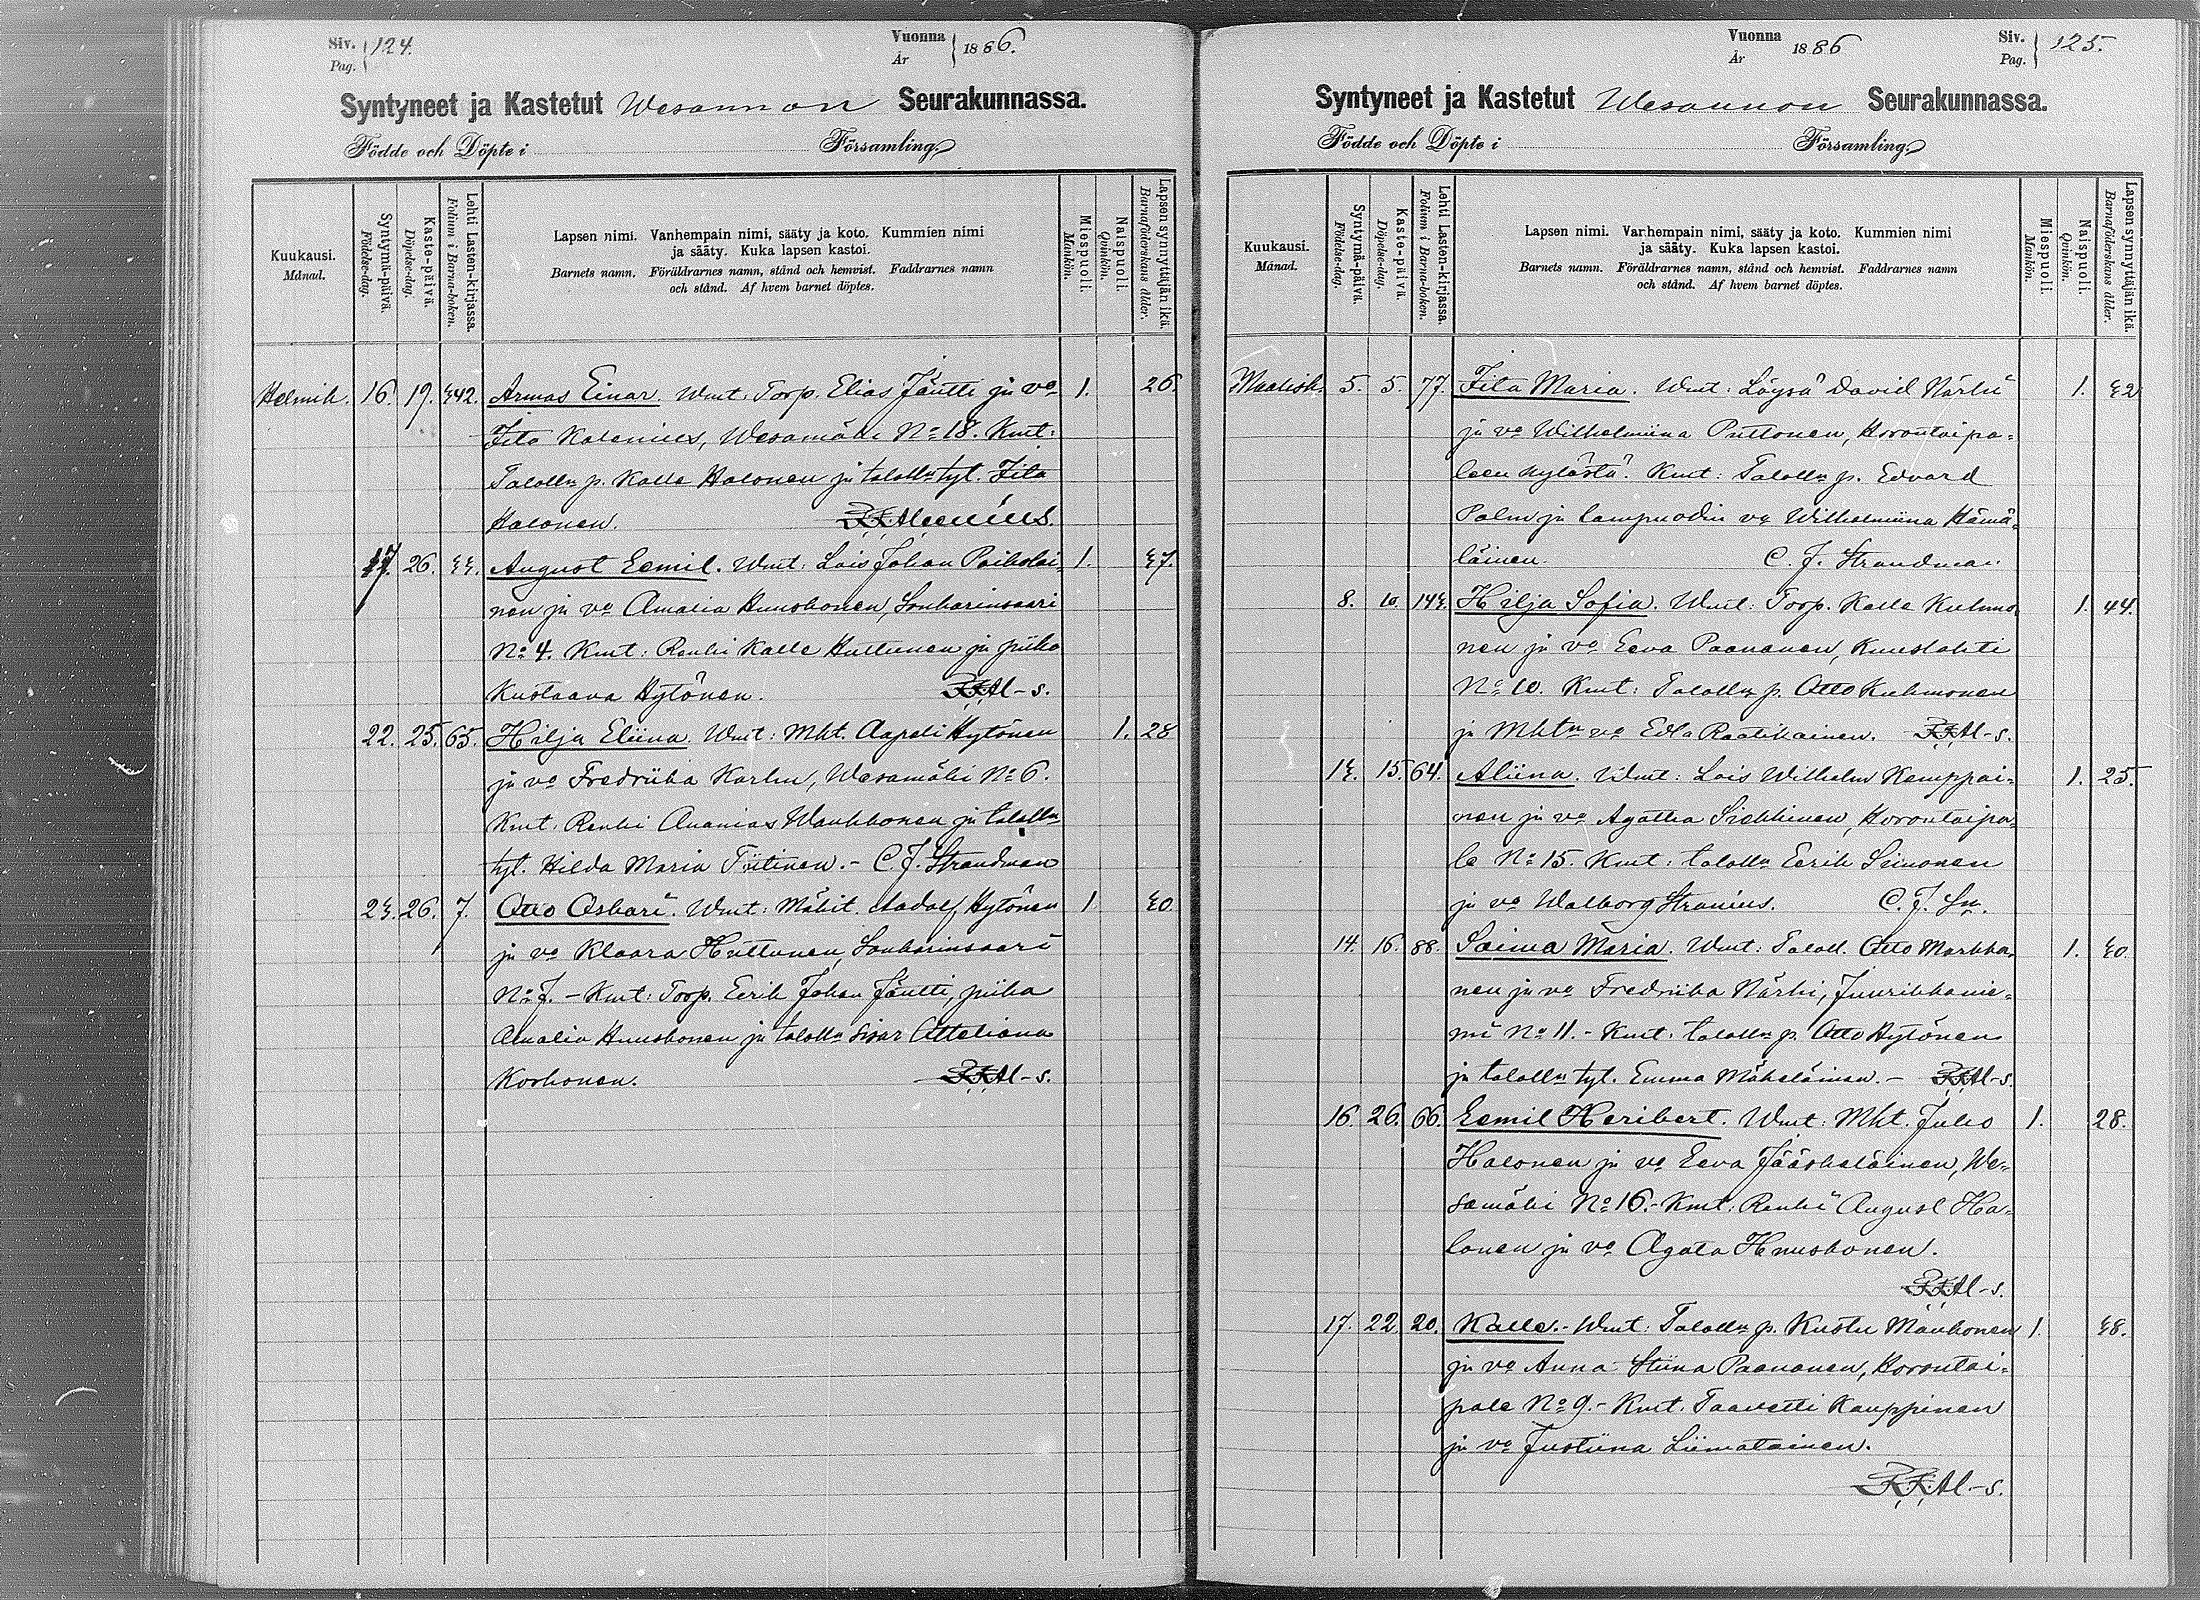 Siv. 124.
Pag.
Vuonna 1886.
År
Syntyneet ja Kastetut Wesannon Seurakunnassa.
Födde och Döpte i Församling.
Kuukausi.
Månad.
Syntymä-päivä.
Födelse-dag.
Kaste-päivä.
Döpelse-dag.
Lehti Lasten-kirjassa.
Folium i Barna-boken.
Lapsen nimi. Vanhempain nimi, sääty ja koto. Kummien nimi
ja sääty. Kuka lapsen kastoi.
Barnets namn. Föräldrarnes namn, stånd och hemvist. Faddrarnes namn
och stånd. Af hvem barnet döptes.
Miespuoli.
Mankön.
Naispuoli.
Qvinkön.
Lapsen synnyttäjän ikä.
Barnaföderskans ålder.
Helmik. 16. 19. 342. Armas Einar. Wmt: Torp. Elias Jäntti ja vo 1. 26
Fita Kalenius, Wesamäki No 18. Kmt:
Talolln p. Kalle Halonen ja talolln tyt. Fita
Halonen. K.K. Alcenius.
17. 26. 33. August Eemil. Wmt: Lois Johan Paiholai- 1. 37.
nen ja vo Amalia Huuskonen, Sonkarinsaari
No 4. Kmt: Renki Kalle Huttunen ja piika
Kustaava Hytönen. K.K. Al-s.
22. 25. 65. Hilja Eliina. Wmt: Mkt. Aapeli Hytönen 1. 28
ja vo Fredriika Karhu, Wesamäki No 6.
Kmt: Renki Ananias Waukkonen ja talolln
tyt. Hilda Maria Tiitinen. - C. J. Strandman
23. 26. 7. Otto Oskari. Wmt: Mäkit. Aadolf Hytönen 1 30
ja vo Klaara Huttunen, Sonkarinsaari
No 7. - Kmt: Torp. Eerik Johan Jäntti, piika
Amalia Huuskonen ja talolln sisar Otteliana
Korhonen. K.K. Al-s.
Vuonna 1886 Siv. 125.
År Pag.
Syntyneet ja Kastetut Wesannon Seurakunnassa.
Födde och Döpte i Församling.
Kuukausi.
Månad.
Syntymä-päivä.
Födelse-dag.
Kaste-päivä.
Döpelse-dag.
Lehti Lasten-kirjassa.
Folium i Barna-boken.
Lapsen nimi. Vanhempain nimi, sääty ja koto. Kummien nimi
ja sääty. Kuka lapsen kastoi.
Barnets namn. Föräldrarnes namn, stånd och hemvist. Faddrarnes namn
och stånd. Af hvem barnet döptes.
Miespuoli.
Mankön.
Naispuoli.
Qvinkön.
Lapsen synnyttäjän ikä.
Barnaföderskans ålder.
Maalisk. 5. 5. 77. Fita Maria. Wmt: Löysä David Närhi 1. 32
ja vo Wilhelmiina Puttonen, Horontaipa-
leen kylästä. Kmt: Talolln p. Edvard
Palm ja lampuodin vo Wilhelmiina Hämä-
läinen. C. J. Strandman.
8. 10. 143. Hilja Sofia. Wmt: Torp. Kalle Kuhmo- 1. 44.
nen ja vo Eeva Paananen, Kuuslahti
No 10. Kmt: Talolln p. Otto Kuhmonen
ja Mktn vo Edla Raatikainen. K.K. Al-s.
13. 15. 64. Aliina. Wmt: Lois Wilhelm Kemppai- 1. 25.
nen ja vo Agatha Siekkinen, Horontaipa-
le No 15. Kmt: talolln Eerik Siimonen
ja vo Walborg Stranius. C. J. Sn.
14. 16. 88. Saima Maria. Wmt: Taloll. Otto Markka- 1. 30
nen ja vo Fredriika Närhi, Juurikkanie-
mi No 11. - Kmt: talolln p. Otto Hytönen
ja talolln tyt. Emma Mäkeläinen. - K.K. Al-s
16. 26. 66. Eemil Heribert. Wmt: Mkt. Juho 1. 28.
Halonen ja vo Eeva Jääskeläinen, We-
samäki No 16. - Kmt: Renki August Ha-
lonen ja vo Agata Huuskonen.
K.K. Al-s.
17. 22 20. Kalle. - Wmt: Talolln p. Kustu Mankonen 1. 38.
ja vo Anna Stiina Paananen, Horontai-
pale No 9. - Kmt: Taavetti Kauppinen
ja vo Justiina Liimatainen.
K.K. Al-s.